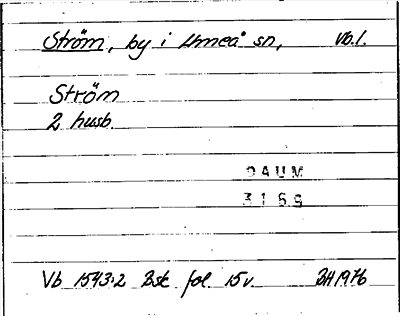 Ström, by i Umeå sn, Vb.l.
Ström
2 husb.
DAUM
3169
Vb 1543:2 Bst fol. 15v. BH 1976